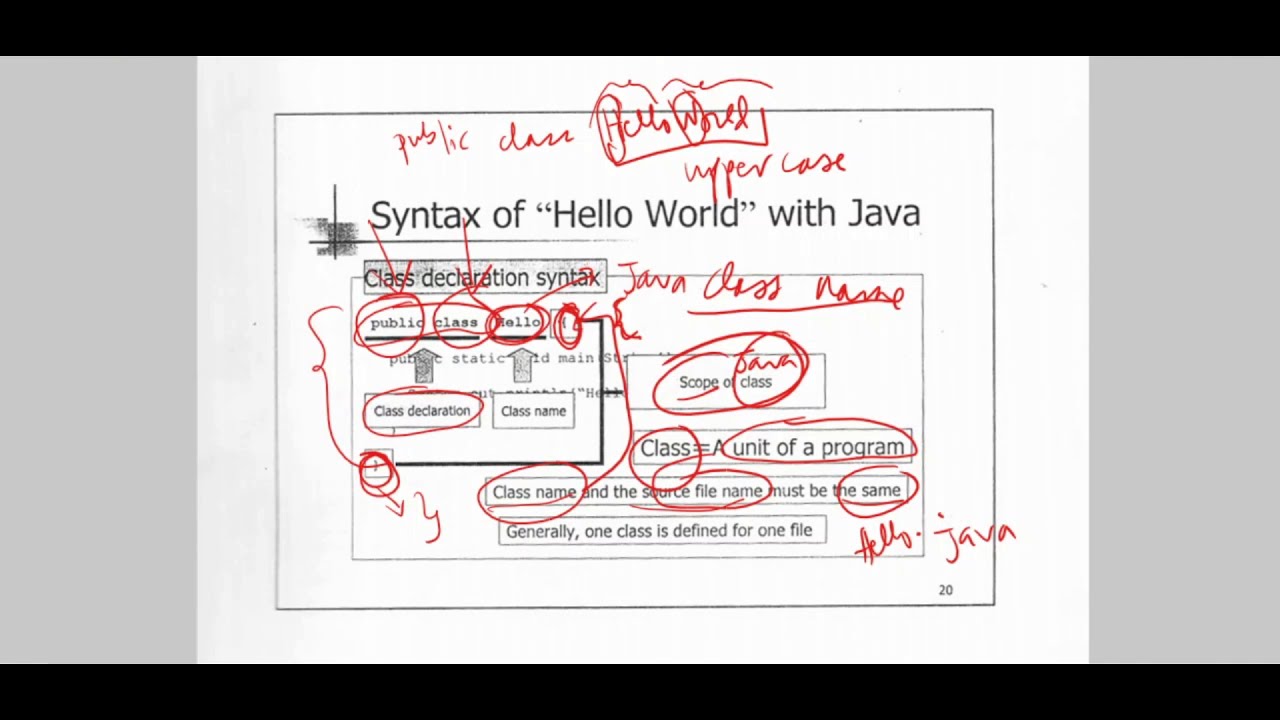 public class Hello World
upper case
Syntax of “Hello World” with Java
Class declaration syntax
Java class name
public class Hello {
{
public static main(String
out.println("Hello
java
Scope of class
Class declaration
Class name
Class=A unit of a program
}
Class name and the source file name must be the same
}
Generally, one class is defined for one file
Hello.java
20